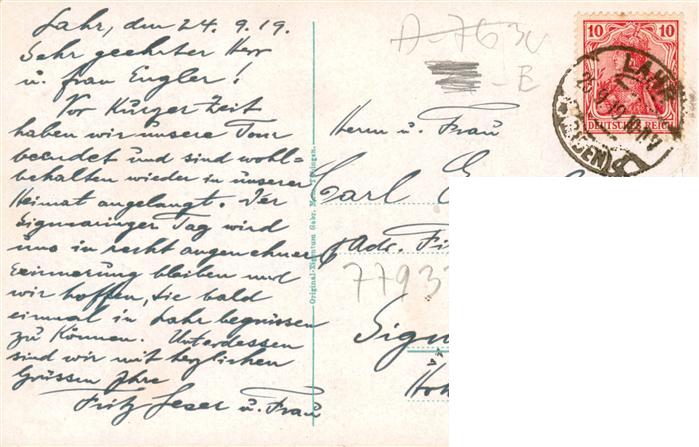 Lahr, den 24. 9. 19.
Sehr geehrter Herr
u. Frau Engler!
Vor kurzer Zeit
haben wir unsere Tour
beendet und sind wohl=
behalten wieder in unserer
Heimat angelangt. Der
Sigmaringer Tag wird
uns in recht angenehmer
Erinnerung bleiben und
wir hoffen, Sie bald
einmal in Lahr begrüssen
zu können. Unterdessen
sind wir mit herzlichen
Grüssen Ihre
Fritz Leser u. Frau
Original-Eigentum Gebr. Tübingen.
A-763
-B
10 10
DEUTSCHES REICH
LAHR
(BADEN)
Herrn u. Frau
Carl
Adr.
7793